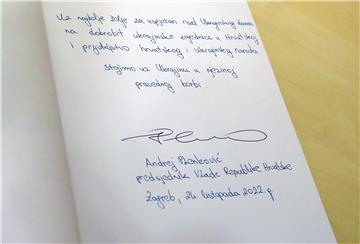 Uz najbolje želje za uspješan rad Ukrajinskog doma
na dobrobit ukrajinske zajednice u Hrvatskoj
i prijateljstvo hrvatskog i ukrajinskog naroda
stojimo uz Ukrajinu u njezinoj
pravednoj borbi.
Andrej Plenković
predsjednik Vlade Republike Hrvatske
Zagreb, 24. listopada 2022. g.